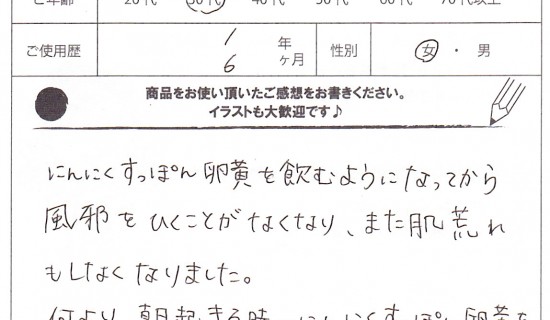 ご年齢 20代 30代 40代 50代 60代 70代以上
ご使用歴 1年 6ヶ月 性別 女 ・ 男
商品をお使い頂いたご感想をお書きください。
イラストも大歓迎です♪
にんにくすっぽん卵黄を飲むようになってから
風邪をひくことがなくなり、また肌荒れ
もしなくなりました。
何より、朝起きる時、にんにくすっぽん卵黄を